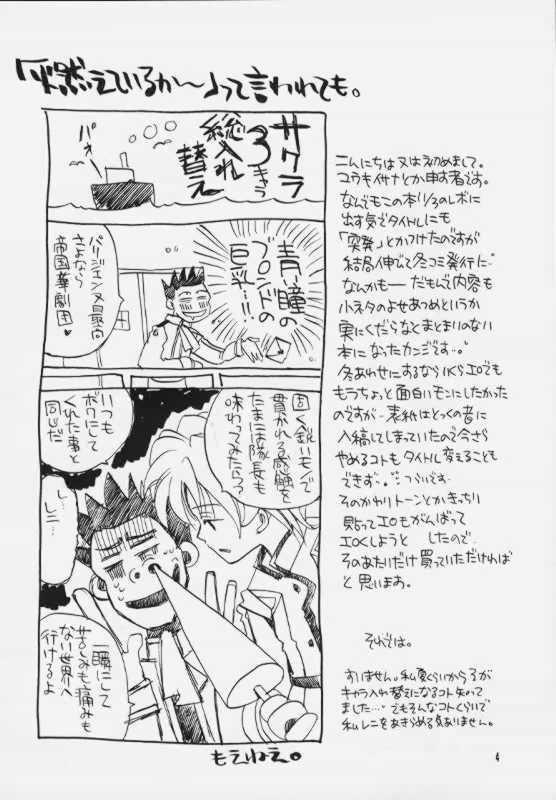 「燃えているか〜」って言われても。
サクラ
3キャラ
総入れ
替え
パオー
青い瞳の
ブロンドの
巨乳…!!
パリジェンヌ最高
さよなら
帝国華劇団♥
固く鋭いモンで
貫かれる感触を
たまには隊長も
味わってみたら?
いつも
ボクにして
くれた事と
同じだ
し…し…
レニ…
一瞬にして
苦しみも痛みも
ない世界へ
行けるよ
もえねえ。
こんにちは又は初めまして。
コウキイサナとか申す者です。
なんでもこの本11/3のレボに
出す気でタイトルにも
「突発」とかつけたのですが
結局伸びて冬コミ発行に…
なんかもーーだもんで内容も
小ネタのよせあつめというか
実にくだらなくまとまりのない
本になったカンジです…。
冬あわせにするならいくらエロでも
もうちょっと面白いモンにしたかった
のですが…表紙はとっくの昔に
入稿してしまっていたので今さら
やめるコトもタイトル変えることも
できず…。つらいです。
そのかわりトーンとかきっちり
貼ってエロもがんばって
エロくしようと したので、
そのあたりだけ買っていただければ
と思います。
それでは。
すいません。私夏くらいから3が
キャラ入れ替えになるコト知って
ました…。でもそんなコトくらいで
私レニをあきらめる気ありません。
4